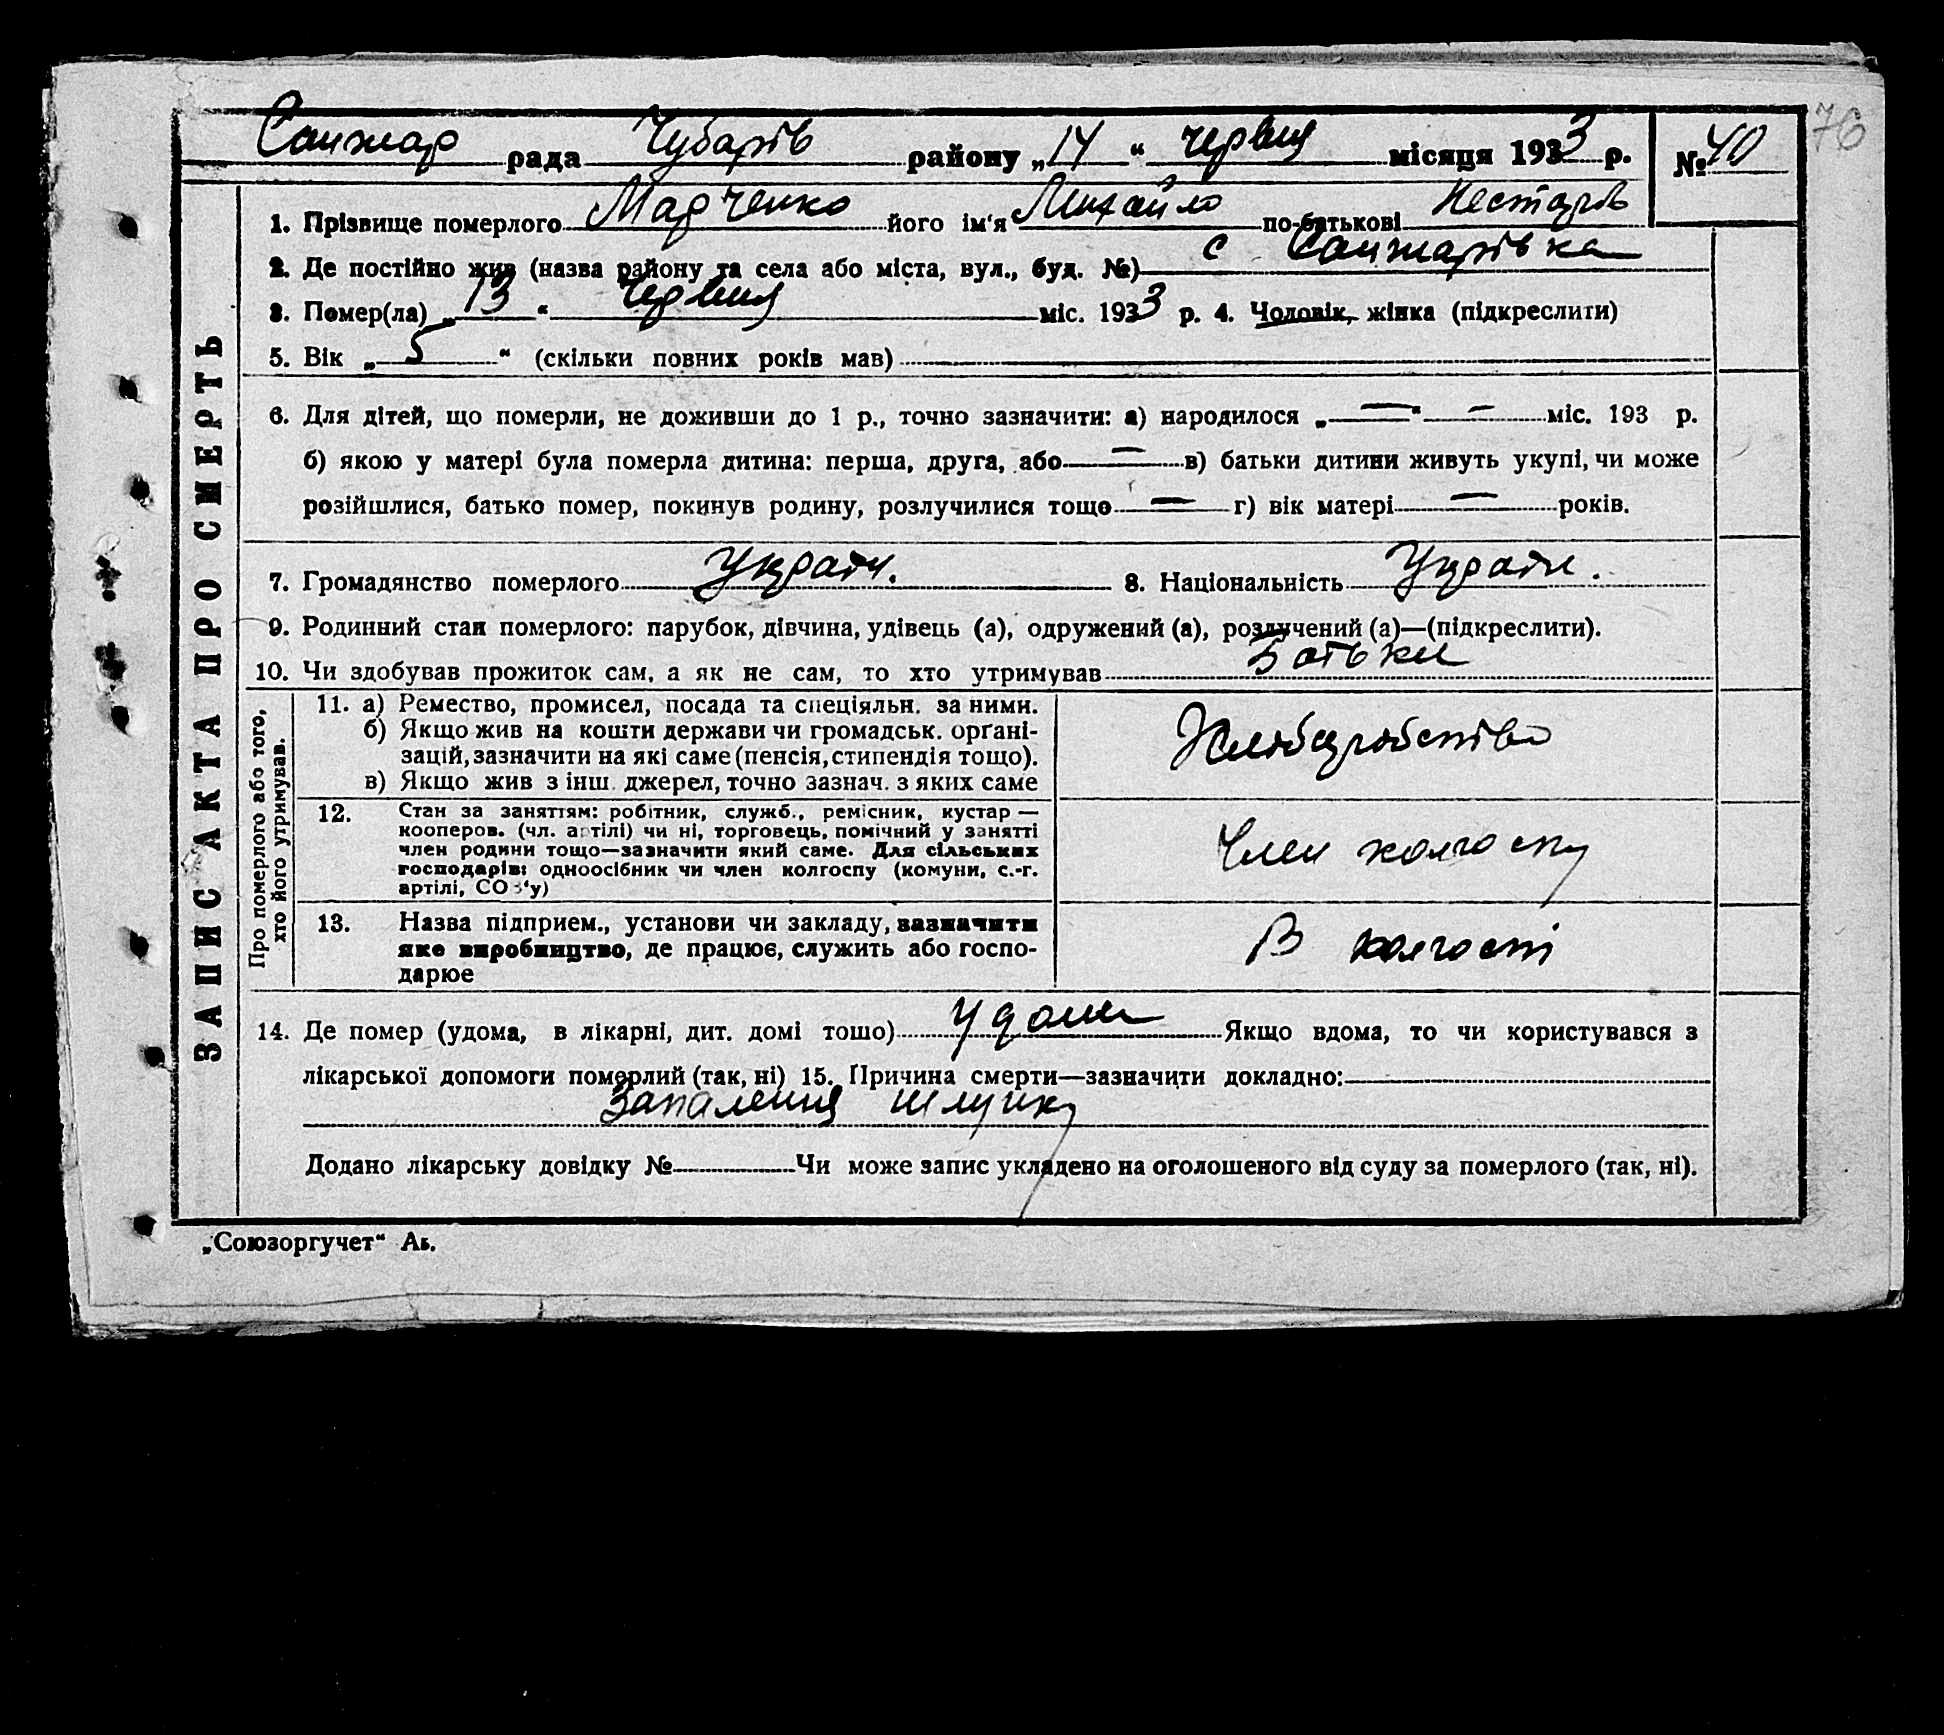 76
Санжар рада Чубарів району „14“ червня місяця 1933 р. № 40
1. Прізвище померлого Марченко його ім‘я Михайло по-батькові Несторів
2. Де постійно жив (назва району та села або міста, вул., буд. №) с Санжарівка
3. Помер(ла) „13“ червня міс. 1933 р. 4. Чоловік, жінка (підкреслити)
5. Вік „5“ (скільки повних років мав)
6. Для дітей, що померли, не доживши до 1 р., точно зазначити: а) народилося „—“ — міс. 193 р.
б) якою у матері була померла дитина: перша, друга, або — в) батьки дитини живуть укупі, чи може
розійшлися, батько помер, покинув родину, розлучилися тощо — г) вік матері — років.
7. Громадянство померлого Украін. 8. Національність Украін.
9. Родинний стан померлого: парубок, дівчина, удівець (а), одружений (а), розлучений (а)—(підкреслити).
10. Чи здобував прожиток сам, а як не сам, то хто утримував Батьки
Про померлого або того,
хто його утримував.
11. а) Ремество, промисел, посада та спеціяльн. за ними.
б) Якщо жив на кошти держави чи громадськ. орґані-
зацій, зазначити на які саме (пенсія, стипендія тощо).
в) Якщо жив з інш. джерел, точно зазнач. з яких саме
Хліборобство
12. Стан за заняттям: робітник, служб., ремісник, кустар —
кооперов. (чл. артілі) чи ні, торговець, помічний у занятті
член родини тощо—зазначити який саме. Для сільських
господарів: одноосібник чи член колгоспу (комуни, с.-г.
артілі, СОЗ‘у)
Член колгоспу
13. Назва підприєм., установи чи закладу, зазначити
яке виробництво, де працює, служить або госпо-
дарює
В колгоспі
14. Де помер (удома, в лікарні, дит. домі тошо) удома Якщо вдома, то чи користувався з
лікарської допомоги померлий (так, ні) 15. Причина смерти—зазначити докладно:
Запалення шлунку
Додано лікарську довідку № Чи може запис укладено на оголошеного від суду за померлого (так, ні).
ЗАПИС АКТА ПРО СМЕРТЬ
„Союзоргучет“ Ак.